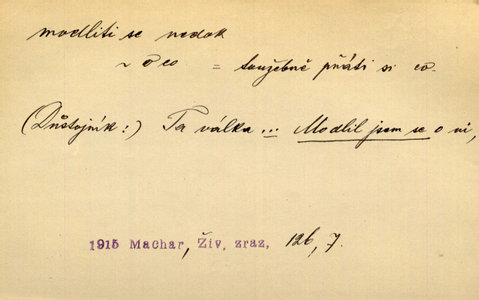 modliti se nedok
~ o co = toužebně přáti si co.
(Důstojník:) Ta válka ... Modlil jsem se o ni,
1915 Machar, Živ, zraz, 126, 7.